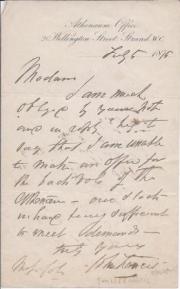 Athenæum Office
20, Wellington Street, Strand, W.C.
July 5 1876
Madam
I am much
obliged by your note
and in reply beg to
say that I am unable
to make an offer for
the back vols of the
Athenæum – our stock
in hand being sufficient
to meet demands –
truly yours
John Francis